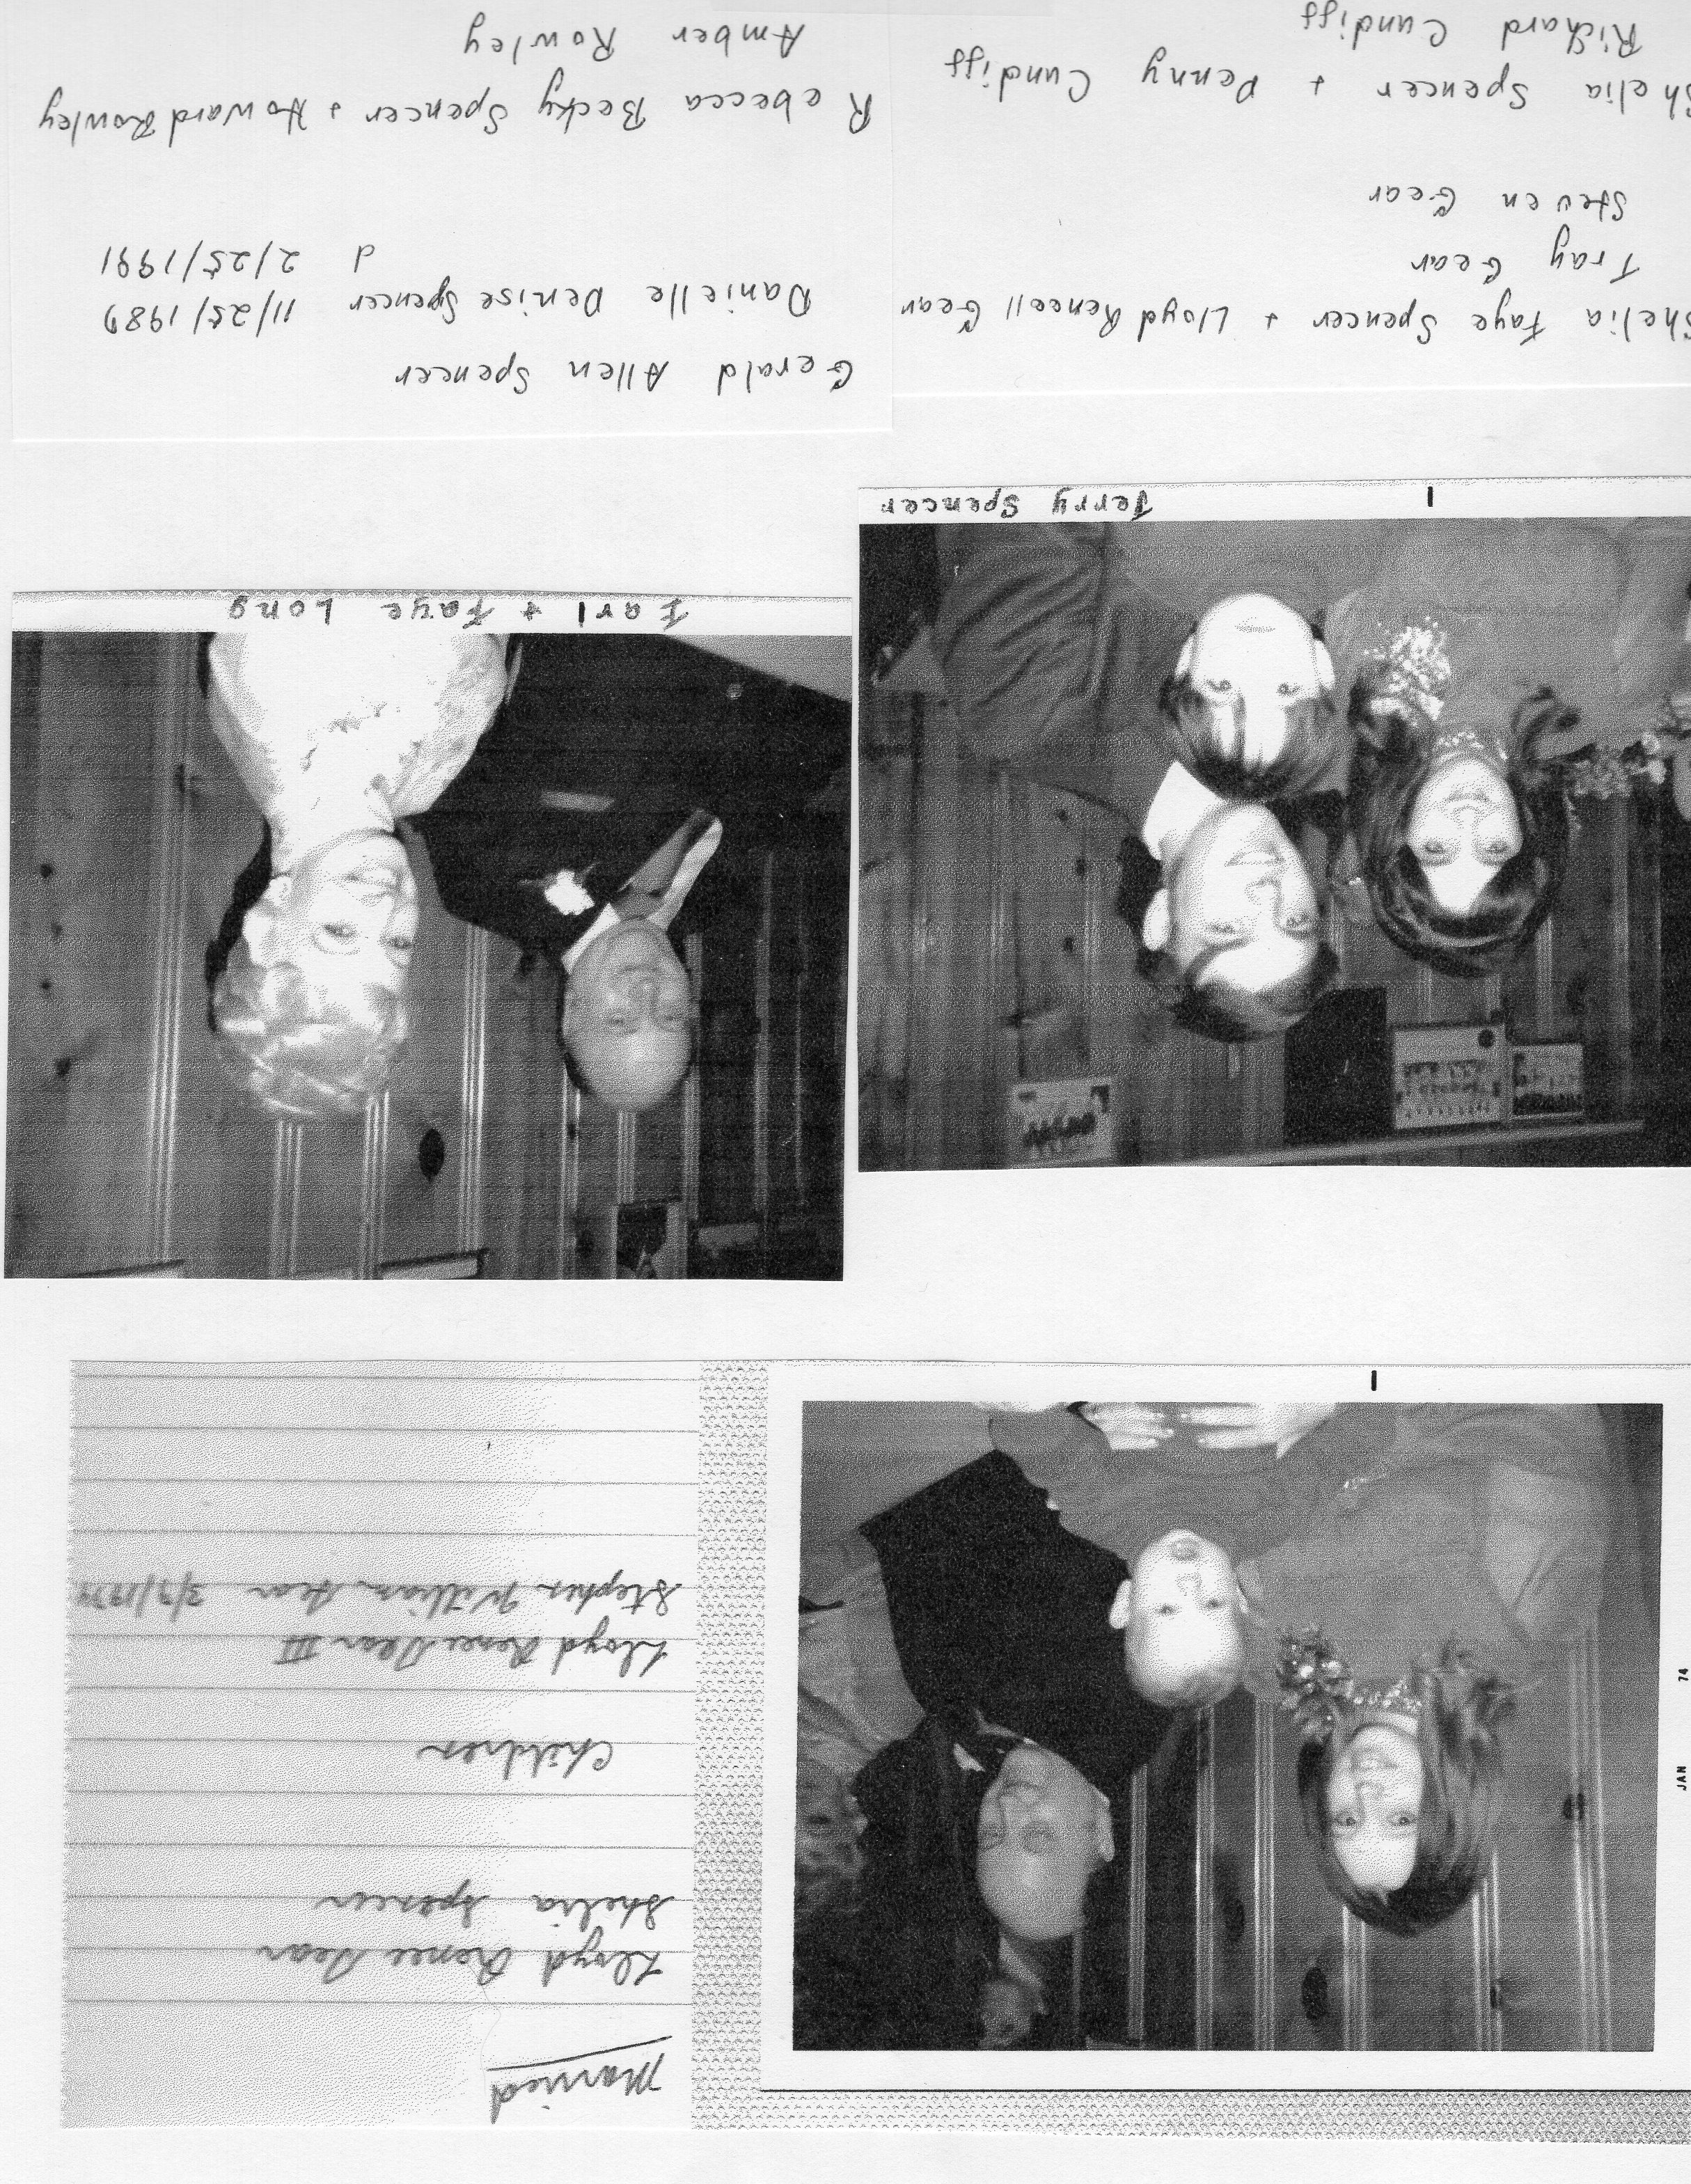 Married
Lloyd Renee Gear
Shelia Spencer
Children
Lloyd Renee Gear III
Stephen William Gear 3/3/1974
JAN 74
Earl + Faye Long
Jerry Spencer
Shelia Faye Spencer + Lloyd Gear
Tray Gear
Steven Gear
Shelia Spencer + Denny Cundiff
Richard Cundiff
Gerald Allen Spencer
Danielle Denise Spencer 11/25/1989
d 2/25/1991
Rebecca Becky Spencer + Howard Rowley
Amber Rowley